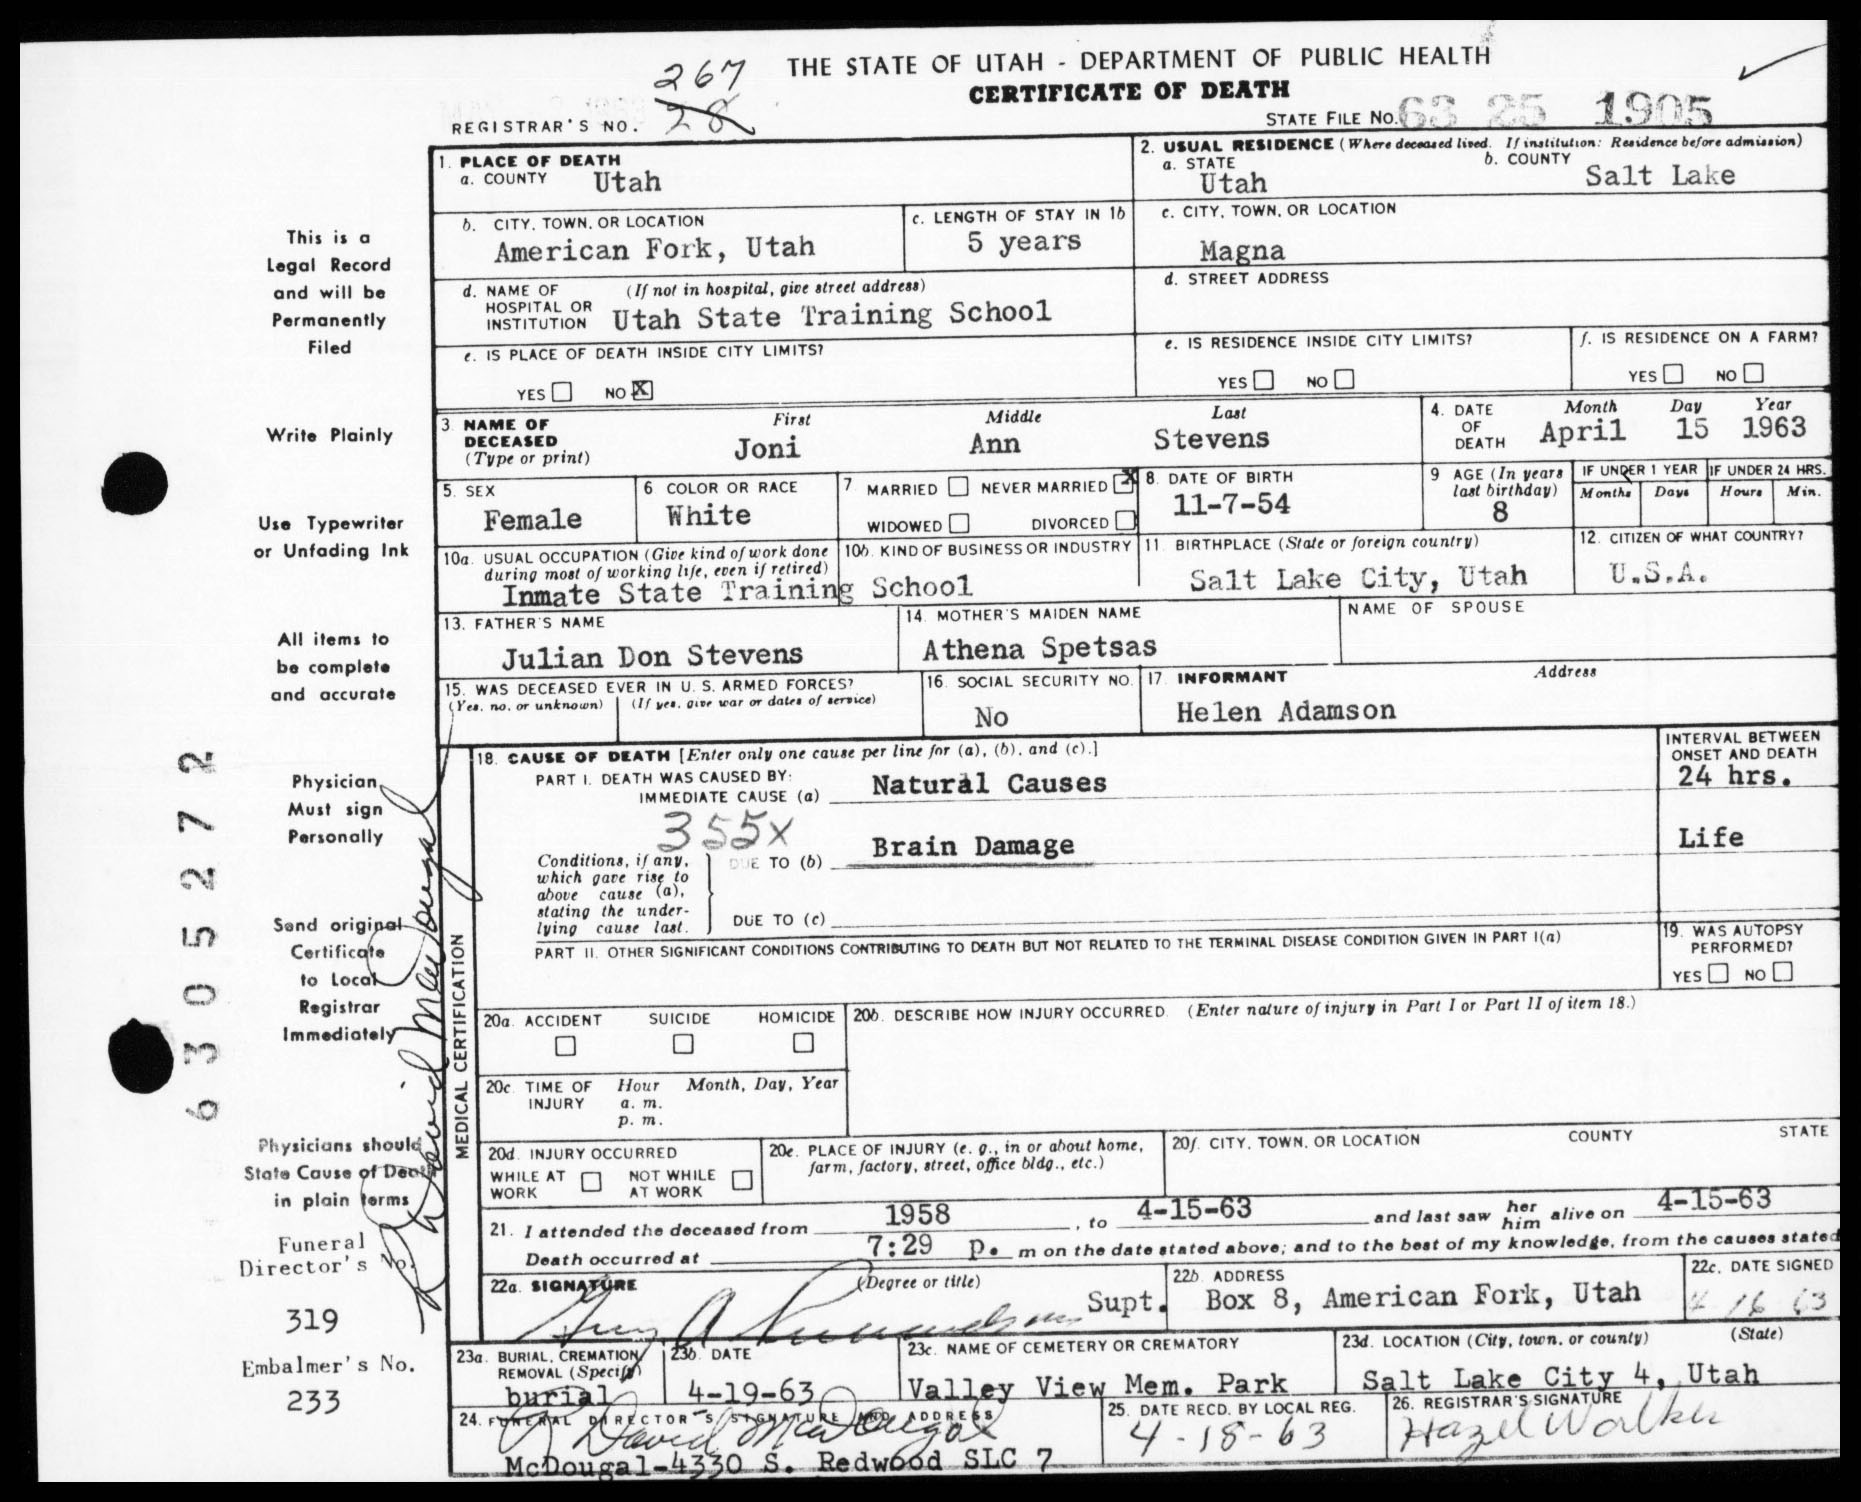 THE STATE OF UTAH - DEPARTMENT OF PUBLIC HEALTH
CERTIFICATE OF DEATH
267
REGISTRAR'S NO. 28
STATE FILE NO. 63 25 1905
1. PLACE OF DEATH
a. COUNTY Utah
2. USUAL RESIDENCE (Where deceased lived. If institution: Residence before admission)
a. STATE Utah b. COUNTY Salt Lake
b. CITY, TOWN, OR LOCATION American Fork, Utah
c. LENGTH OF STAY IN 1b 5 years
c. CITY, TOWN, OR LOCATION Magna
d. NAME OF HOSPITAL OR INSTITUTION (If not in hospital, give street address) Utah State Training School
d. STREET ADDRESS
e. IS PLACE OF DEATH INSIDE CITY LIMITS? YES NO X
e. IS RESIDENCE INSIDE CITY LIMITS? YES NO
f. IS RESIDENCE ON A FARM? YES NO
3. NAME OF DECEASED (Type or print) First Joni Middle Ann Last Stevens
4. DATE OF DEATH Month April Day 15 Year 1963
5. SEX Female
6. COLOR OR RACE White
7. MARRIED NEVER MARRIED X WIDOWED DIVORCED
8. DATE OF BIRTH 11-7-54
9 AGE (In years last birthday) 8
IF UNDER 1 YEAR Months Days
IF UNDER 24 HRS. Hours Min.
10a. USUAL OCCUPATION (Give kind of work done during most of working life, even if retired)
10b. KIND OF BUSINESS OR INDUSTRY
Inmate State Training School
11. BIRTHPLACE (State or foreign country) Salt Lake City, Utah
12. CITIZEN OF WHAT COUNTRY? U.S.A.
13. FATHER'S NAME Julian Don Stevens
14. MOTHER'S MAIDEN NAME Athena Spetsas
NAME OF SPOUSE
15. WAS DECEASED EVER IN U. S. ARMED FORCES? (Yes, no, or unknown) (If yes, give war or dates of service)
16. SOCIAL SECURITY NO. No
17. INFORMANT Address
Helen Adamson
18. CAUSE OF DEATH [Enter only one cause per line for (a), (b), and (c).]
INTERVAL BETWEEN ONSET AND DEATH
PART I. DEATH WAS CAUSED BY:
IMMEDIATE CAUSE (a) Natural Causes 24 hrs.
355X
Conditions, if any, which gave rise to above cause (a), stating the underlying cause last.
DUE TO (b) Brain Damage Life
DUE TO (c)
PART II. OTHER SIGNIFICANT CONDITIONS CONTRIBUTING TO DEATH BUT NOT RELATED TO THE TERMINAL DISEASE CONDITION GIVEN IN PART I(a)
19. WAS AUTOPSY PERFORMED? YES NO
20a. ACCIDENT SUICIDE HOMICIDE
20b. DESCRIBE HOW INJURY OCCURRED. (Enter nature of injury in Part I or Part II of item 18.)
20c. TIME OF INJURY Hour a. m. p. m. Month, Day, Year
20d. INJURY OCCURRED WHILE AT WORK NOT WHILE AT WORK
20e. PLACE OF INJURY (e. g., in or about home, farm, factory, street, office bldg., etc.)
20f. CITY, TOWN, OR LOCATION COUNTY STATE
21. I attended the deceased from 1958, to 4-15-63 and last saw her him alive on 4-15-63
Death occurred at 7:29 p. m on the date stated above; and to the best of my knowledge, from the causes stated
22a. SIGNATURE (Degree or title) Supt.
22b. ADDRESS Box 8, American Fork, Utah
22c. DATE SIGNED 4 16 63
23a. BURIAL, CREMATION REMOVAL (Specify) burial
23b. DATE 4-19-63
23c. NAME OF CEMETERY OR CREMATORY Valley View Mem. Park
23d. LOCATION (City, town, or county) (State) Salt Lake City 4, Utah
24. FUNERAL DIRECTOR'S SIGNATURE AND ADDRESS
R David McDougal
McDougal-4330 S. Redwood SLC 7
25. DATE RECD. BY LOCAL REG. 4-18-63
26. REGISTRAR'S SIGNATURE Hazel Walker
MEDICAL CERTIFICATION
This is a
Legal Record
and will be
Permanently
Filed
Write Plainly
Use Typewriter
or Unfading Ink
All items to
be complete
and accurate
Physician
Must sign
Personally
Send original
Certificate
to Local
Registrar
Immediately
Physicians should
State Cause of Death
in plain terms
Funeral
Director's No.
319
Embalmer's No.
233
R David McDougal
6305272